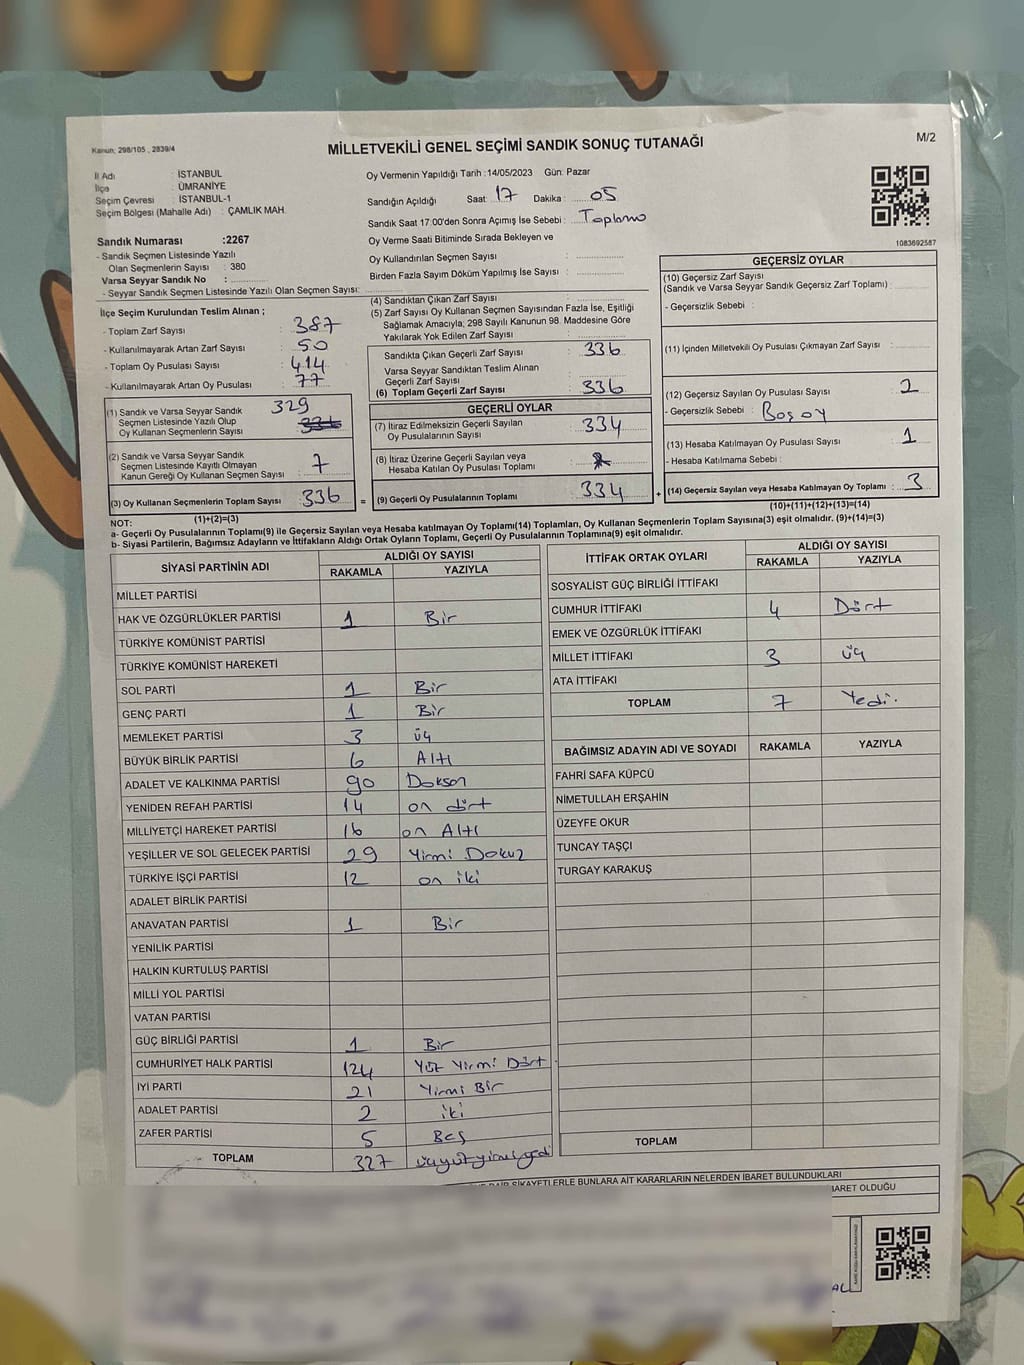 Kanun: 298/105 , 2839/4
MİLLETVEKİLİ GENEL SEÇİMİ SANDIK SONUÇ TUTANAĞI
M/2
İl Adı : İSTANBUL
İlçe : ÜMRANİYE
Seçim Çevresi : İSTANBUL-1
Seçim Bölgesi (Mahalle Adı) : ÇAMLIK MAH.
Oy Vermenin Yapıldığı Tarih :14/05/2023 Gün: Pazar
Sandığın Açıldığı Saat: 17 Dakika: 05
Sandık Saat 17:00'den Sonra Açımış İse Sebebi :
Oy Verme Saati Bitiminde Sırada Bekleyen ve
Oy Kullandırılan Seçmen Sayısı :
Birden Fazla Sayım Döküm Yapılmış İse Sayısı :
1083692587
Sandık Numarası :2267
- Sandık Seçmen Listesinde Yazılı
Olan Seçmenlerin Sayısı : 380
Varsa Seyyar Sandık No :
- Seyyar Sandık Seçmen Listesinde Yazılı Olan Seçmen Sayısı:
İlçe Seçim Kurulundan Teslim Alınan ;
- Toplam Zarf Sayısı : 387
- Kullanılmayarak Artan Zarf Sayısı : 50
- Toplam Oy Pusulası Sayısı : 414
- Kullanılmayarak Artan Oy Pusulası : 77
(1) Sandık ve Varsa Seyyar Sandık
Seçmen Listesinde Yazılı Olup
Oy Kullanan Seçmenlerin Sayısı : 329
(2) Sandık ve Varsa Seyyar Sandık
Seçmen Listesinde Kayıtlı Olmayan
Kanun Gereği Oy Kullanan Seçmen Sayısı : 7
(3) Oy Kullanan Seçmenlerin Toplam Sayısı : 336
(1)+(2)=(3)
(4) Sandıktan Çıkan Zarf Sayısı :
(5) Zarf Sayısı Oy Kullanan Seçmen Sayısından Fazla İse, Eşitliği
Sağlamak Amacıyla; 298 Sayılı Kanunun 98. Maddesine Göre
Yakılarak Yok Edilen Zarf Sayısı :
Sandıkta Çıkan Geçerli Zarf Sayısı : 336
Varsa Seyyar Sandıktan Teslim Alınan
Geçerli Zarf Sayısı :
(6) Toplam Geçerli Zarf Sayısı : 336
GEÇERLİ OYLAR
(7) İtiraz Edilmeksizin Geçerli Sayılan
Oy Pusulalarının Sayısı : 334
(8) İtiraz Üzerine Geçerli Sayılan veya
Hesaba Katılan Oy Pusulası Toplamı :
= (9) Geçerli Oy Pusulalarının Toplamı : 334 +
GEÇERSİZ OYLAR
(10) Geçersiz Zarf Sayısı
(Sandık ve Varsa Seyyar Sandık Geçersiz Zarf Toplamı) :
- Geçersizlik Sebebi :
(11) İçinden Milletvekili Oy Pusulası Çıkmayan Zarf Sayısı :
(12) Geçersiz Sayılan Oy Pusulası Sayısı : 2
- Geçersizlik Sebebi : Boş oy
(13) Hesaba Katılmayan Oy Pusulası Sayısı : 1
- Hesaba Katılmama Sebebi :
(14) Geçersiz Sayılan veya Hesaba Katılmayan Oy Toplamı : 3
(10)+(11)+(12)+(13)=(14)
NOT:
a- Geçerli Oy Pusulalarının Toplamı(9) ile Geçersiz Sayılan veya Hesaba katılmayan Oy Toplamı(14) Toplamları, Oy Kullanan Seçmenlerin Toplam Sayısına(3) eşit olmalıdır. (9)+(14)=(3)
b- Siyasi Partilerin, Bağımsız Adayların ve İttifakların Aldığı Ortak Oyların Toplamı, Geçerli Oy Pusulalarının Toplamına(9) eşit olmalıdır.
SİYASİ PARTİNİN ADI ALDIĞI OY SAYISI
RAKAMLA YAZIYLA
MİLLET PARTİSİ
HAK VE ÖZGÜRLÜKLER PARTİSİ 1 Bir
TÜRKİYE KOMÜNİST PARTİSİ
TÜRKİYE KOMÜNİST HAREKETİ
SOL PARTİ 1 Bir
GENÇ PARTİ 1 Bir
MEMLEKET PARTİSİ 3 üç
BÜYÜK BİRLİK PARTİSİ 6 Altı
ADALET VE KALKINMA PARTİSİ 90 Doksan
YENİDEN REFAH PARTİSİ 14 on dört
MİLLİYETÇİ HAREKET PARTİSİ 16 on Altı
YEŞİLLER VE SOL GELECEK PARTİSİ 29 Yirmi Dokuz
TÜRKİYE İŞÇİ PARTİSİ 12 on iki
ADALET BİRLİK PARTİSİ
ANAVATAN PARTİSİ 1 Bir
YENİLİK PARTİSİ
HALKIN KURTULUŞ PARTİSİ
MİLLİ YOL PARTİSİ
VATAN PARTİSİ
GÜÇ BİRLİĞİ PARTİSİ 1 Bir
CUMHURİYET HALK PARTİSİ 124 Yüz Yirmi Dört
İYİ PARTİ 21 Yirmi Bir
ADALET PARTİSİ 2 iki
ZAFER PARTİSİ 5 Beş
TOPLAM 327 üçyüzyirmiyedi
İTTİFAK ORTAK OYLARI ALDIĞI OY SAYISI
RAKAMLA YAZIYLA
SOSYALİST GÜÇ BİRLİĞİ İTTİFAKI
CUMHUR İTTİFAKI 4 Dört
EMEK VE ÖZGÜRLÜK İTTİFAKI
MİLLET İTTİFAKI 3 üç
ATA İTTİFAKI
TOPLAM 7 Yedi.
BAĞIMSIZ ADAYIN ADI VE SOYADI RAKAMLA YAZIYLA
FAHRİ SAFA KÜPCÜ
NİMETULLAH ERŞAHİN
ÜZEYFE OKUR
TUNCAY TAŞÇI
TURGAY KARAKUŞ
TOPLAM
DAİR ŞİKAYETLERLE BUNLARA AİT KARARLARIN NELERDEN İBARET BULUNDUKLARI
BARET OLDUĞU